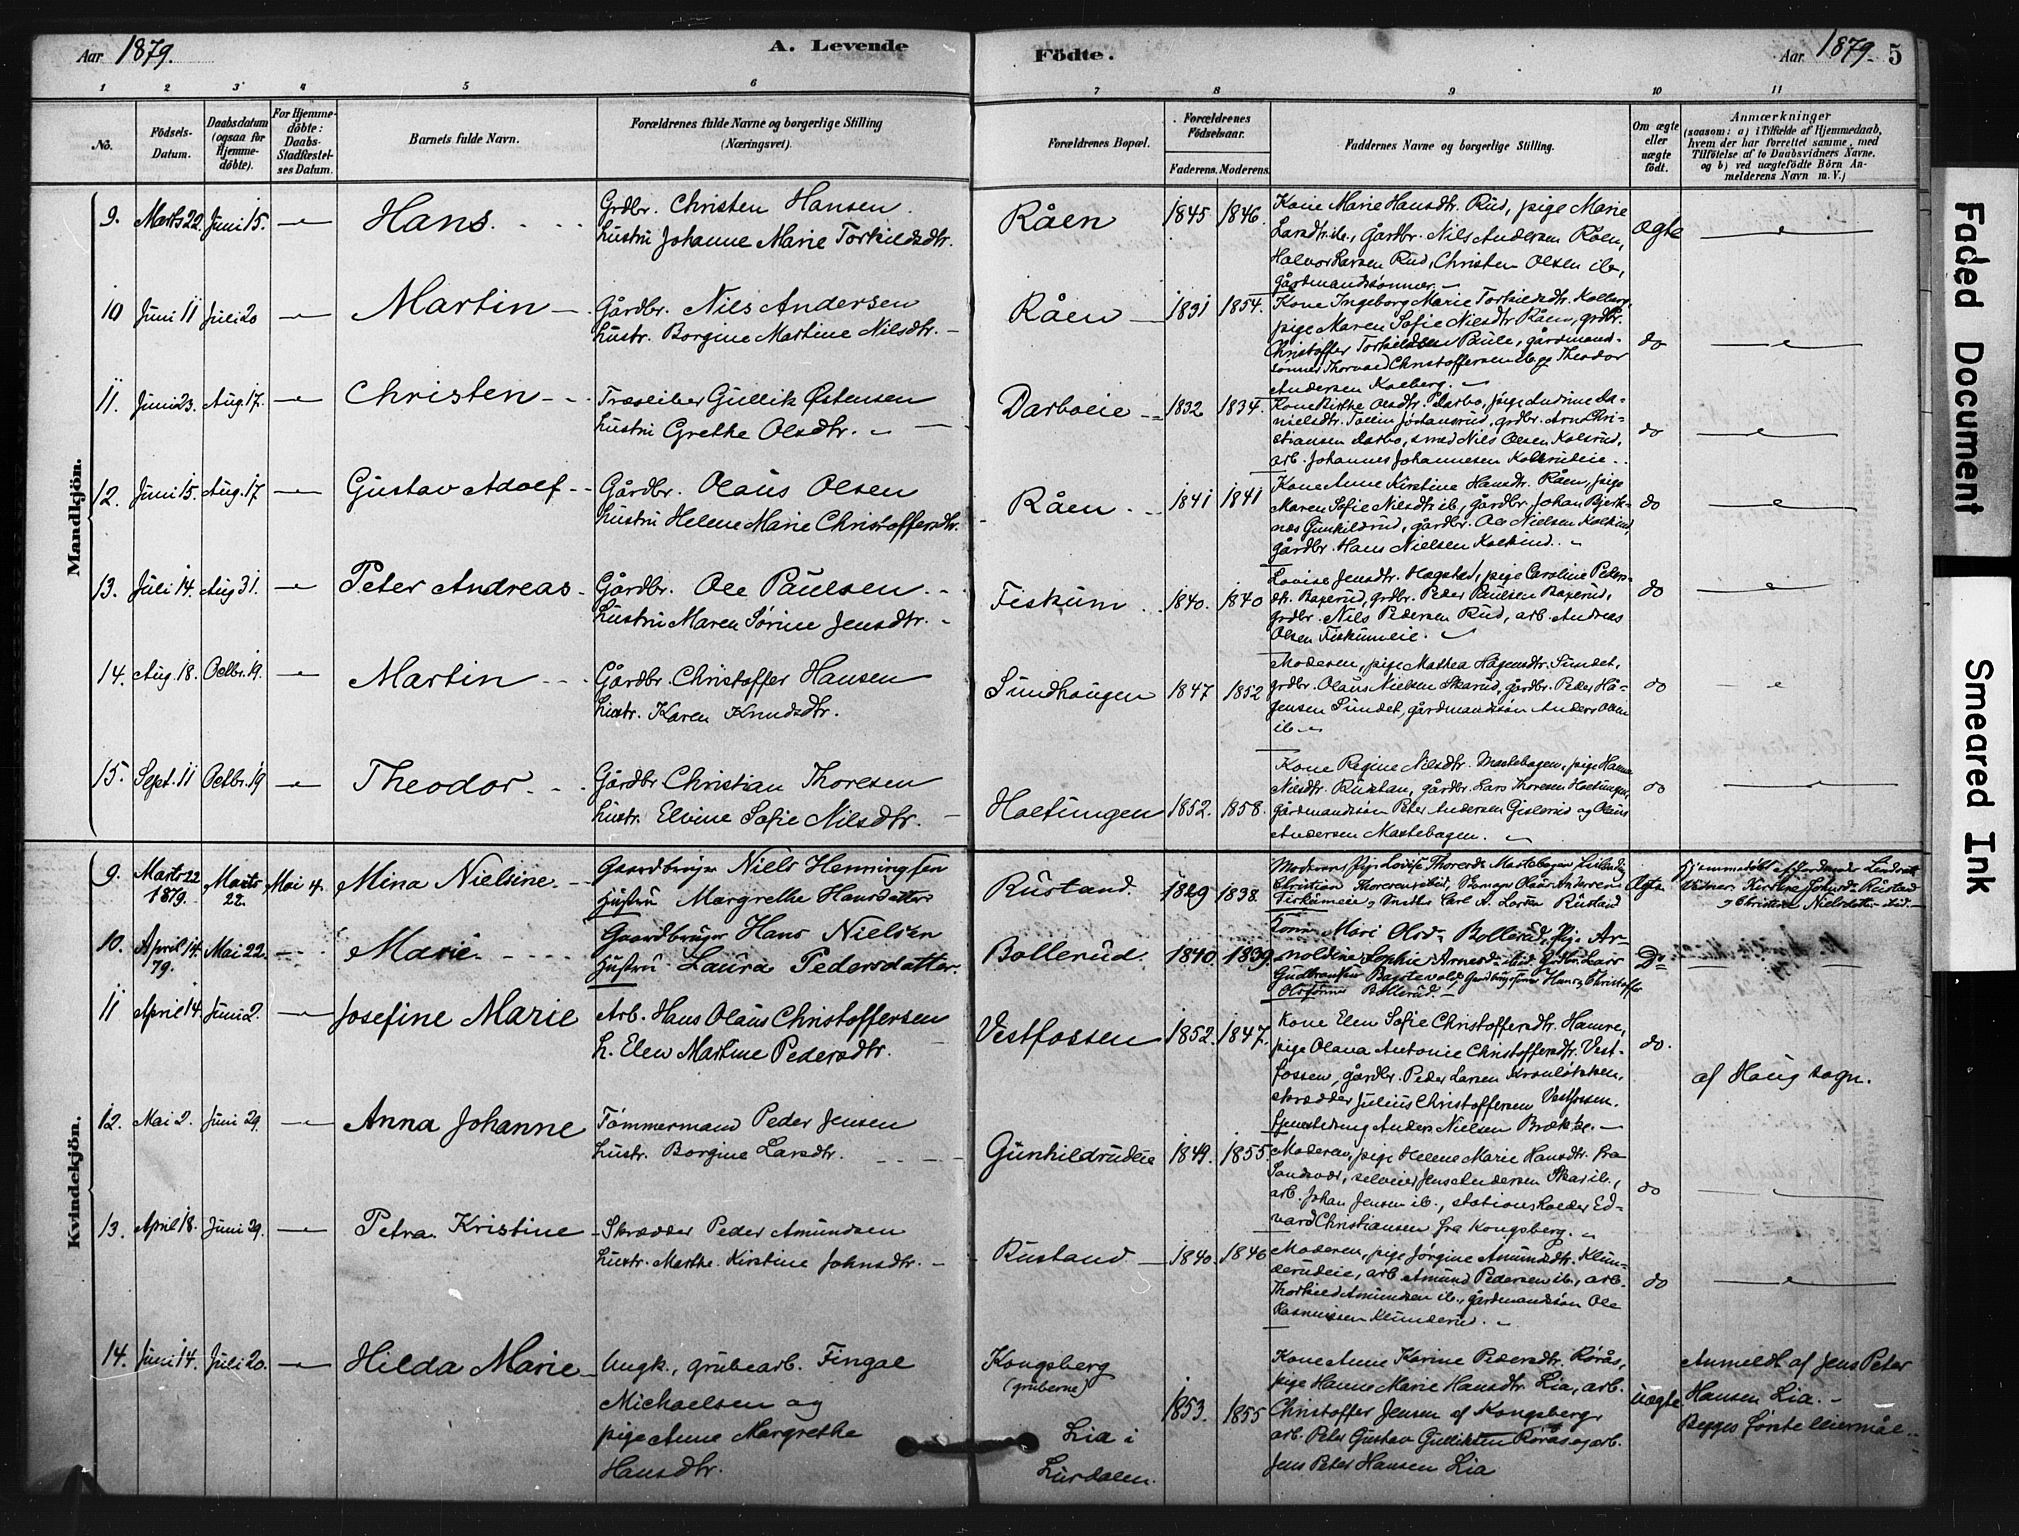 Aar 1879. A. Levende
Födte. Aar 1879. 5
1 2 3 4 5 6 7 8 9 10 11
No.
Födsels-Datum.
Daabsdatum (ogsaa for Hjemme-döbte).
For Hjemme-döbte: Daabs-Stadfæstel-ses Datum.
Barnets fulde Navn.
Forældrenes fulde Navne og borgerlige Stilling
(Næringsvei).
Forældrenes Bopæl.
Forældrenes Födselsaar.
Faderens. Moderens.
Faddernes Navne og borgerlige Stilling.
Om ægte eller uægte födt.
Anmærkninger
(saasom: a) i Tilfælde af Hjemmedaab,
hvem der har forrettet samme, med
Tilföielse af to Daabsvidners Navne,
og b) ved uægtefödte Börn An-
melderens Navn m. V.)
Mandkjön.
9. Marts 22. Juni 15. Hans. Grdbr. Christen Hansen
hustru Johanne Marie Torkildsdtr.
Råen 1845 1846.
Kone Marie Hansdtr. Rud, pige Marie
Larsdtr. ib., Gårdbr. Nils Andersen Råen,
Halvor Larsen Rud, Christen Olsen ib.,
gårdmandssønner.
ægte
10 Juni 11 Juli 20 Martin Gårdbr. Nils Andersen
hustr. Borgine Martine Nilsdtr.
Råen 1831 1854.
Kone Ingeborg Marie Torkildsdtr. Kolberg,
pige Maren Sofie Nilsdtr Råen, grdbr.
Christoffer Torkildsen Paule, gårdmand-
sønner Thorvald Christoffersen ib. og Theodor
Andersen Kolberg.
do
11. Juni 23. Aug. 17. Christen Træsliber Gullik Østensen
hustru Grethe Olsdtr.
Darboeie 1832 1834.
Kone Birthe Olsdtr. Darbo, pige Andrine Da-
nielsdtr. Tollin Johansrud, grdbr. Arn Chri-
stiansen Darbo, smed Nils Olsen Kolsrud,
arb. Johannes Johannesen Kolsrudeie.
do
12. Juni 15. Aug. 17 Gustav Adolf Gårdbr. Olaus Olsen
hustru Helene Marie Christoffersdtr.
Råen. 1841 1841
Kone Anne Kirstine Hansdtr. Råen, pige
Maren Sofie Nilsdtr. ib., gårdbr. Johan Bjerk-
næs Gunhildrud, gårdbr. Ole Nielsen Kolkind,
gårdbr. Hans Nielsen Kolkind.
do
13. Juli 14. Aug 31. Peter Andreas Gårdbr. Ole Paulsen
hustru Maren Sørine Jensdtr.
Fiskum 1840. 1840
Lovise Jensdtr. Hagstad, pige Caroline Peders-
dtr. Baxerud, grdbr. Peder Paulsen Baxerud,
grdbr. Nils Pedersen Rud, arb. Andreas
Olsen Fiskumeie.
do
14. Aug. 18. Octbr. 19. Martin Gårdbr. Christoffer Hansen
hustr. Karen Knudsdtr.
Sundhaugen 1847 1852
Moderen, pige Mathea Hågensdtr. Sundet,
grdbr. Olaus Nielsen Skarud, gårdbr. Peder Hå-
gensen Sundet, gårdmandssøn Anders Olsen
ib.
do
15. Sept. 11 Octbr. 19 Theodor Gårdbr Christian Thoresen
hustr. Elvine Sofie Nilsdtr.
Holtungen 1852. 1858.
Kone Regine Nilsdtr. Mastebogen, pige Hanna
Nilsdtr. Rustan, gårdbr. Lars Thoresen Holtungen,
gårdmandssøn Peter Andersen Gislerud og Olaus
Andersen Mastebogen.
do
Kvindekjön.
9. Marts 22 1879. Marts 22. Mai 4. Mina Nielsine. Gaardbruger Niels Henningsen
Hustru Margrethe Hansdatter
Rustand. 1829 1838.
Moderen, Pige Lovise Thoresd. Mastebogen
Christian Thoresen ibid, Olaus Andersen
Fiskumeie Carl A. Larsen Rustand
Ægte
Hjemmedøbt af
Vidner: Kirstine Johnsd. Rustad
og Christine Nielsdatt. ibid.
10. April 14. 79. Mai 22. Marie Gaardbruger Hans Nielsen
Hustru Laura Pedersdatter.
Bollerud. 1840. 1839.
Kone Mari Olsd. Bollerud, Pige Ar-
noldine Sophie Arnesd. ibid. Grdbr. Lars
Gudbransen Hans og Christoffer
Olssønner Bollerud.
Do
11 April 14. Juni 2. Josefine Marie Arb. Hans Olaus Christoffersen
h. Elen Martine Pedersdtr.
Vestfossen 1852. 1847.
Kone Elen Sofie Christoffersdtr. Hamre,
pige Olava Antonie Christoffersdtr. Vest-
fossen, gårdbr. Peder Larsen Kronløkken,
skrædder Julius Christoffersen Vestfossen.
Anders Nielsen Brække.
do.
af Haug sogn.
12. Mai 2. Juni 29. Anna Johanne Tømmermand Peder Jensen
hustr. Borgine Larsdtr.
Gunhildrudeie 1849. 1855.
Moderen, pige Helene Marie Hansdtr. fra
Sandsvær, selveier Jens Andersen Skar ib.,
arb. Johan Jensen ib., stationsholder Ed-
vard Christiansen fra Kongsberg.
do
13. April 18. Juni 29. Petra Kristine Skrædder Peder Amundsen
hustr. Marthe Kirstine Johnsdtr.
Rustand 1840. 1846
Moderen, pige Jørgine Amundsdtr. Klun-
derudeie, arb Amund Pedersen ib., arb.
Thorkild Amundsen ib., gårdmandssøn Ole
Rasmussen Klunderud.
do
14. Juni 14. Juli 20. Hilda Marie Ungk., grubearb. Fingal
Michaelsen og
pige Anne Margrethe
Hansdtr.
Kongsberg
(gruberne)
Lia i
Lurdalen.
1853. 1855
Kone Anne Karine Pedersdtr. Rørås,
pige Hanne Marie Hansdtr. Lia, arb.
Christoffer Jensen af Kongsberg,
arb. Peter Gustav Gulliksen Rørås og arb.
Jens Peter Hansen Lia
uægte
Anmeldt af Jens Peter
Hansen Lia.
Begges første leiermål.
Faded Document
Smeared Ink